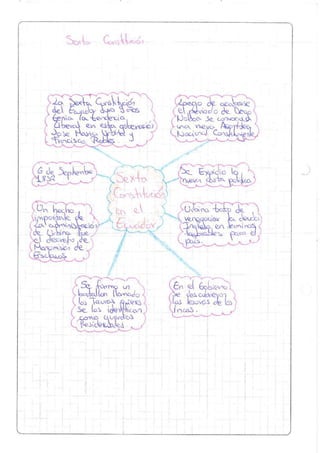 Sexta Constitución
La Sexta Constitución
del Ecuador
tenía la tendencia
Liberal en esta gobernaron
Jose Maria Urbina y
Francisco Robles
Luego de acabarse
el periodo de Diego
Noboa se convocó
una nueva Asamblea
Nacional Constituyente
6 de Septiembre
1852
Sexta
Constitución
en el
Ecuador
Se Expidio la
nueva carta política
Un hecho
importante de
la administración
de Urbina fue
el decreto de
Manumisión de
Esclavos
Urbina trato de
renegociar la deuda
Inglesa en terminos
favorables para el
país.
Se formo un
batallon llamado
los tauras quienes
se los identifican
como guardias
Presidenciales
En el Gobierno
se
los tesoros de los
Incas.